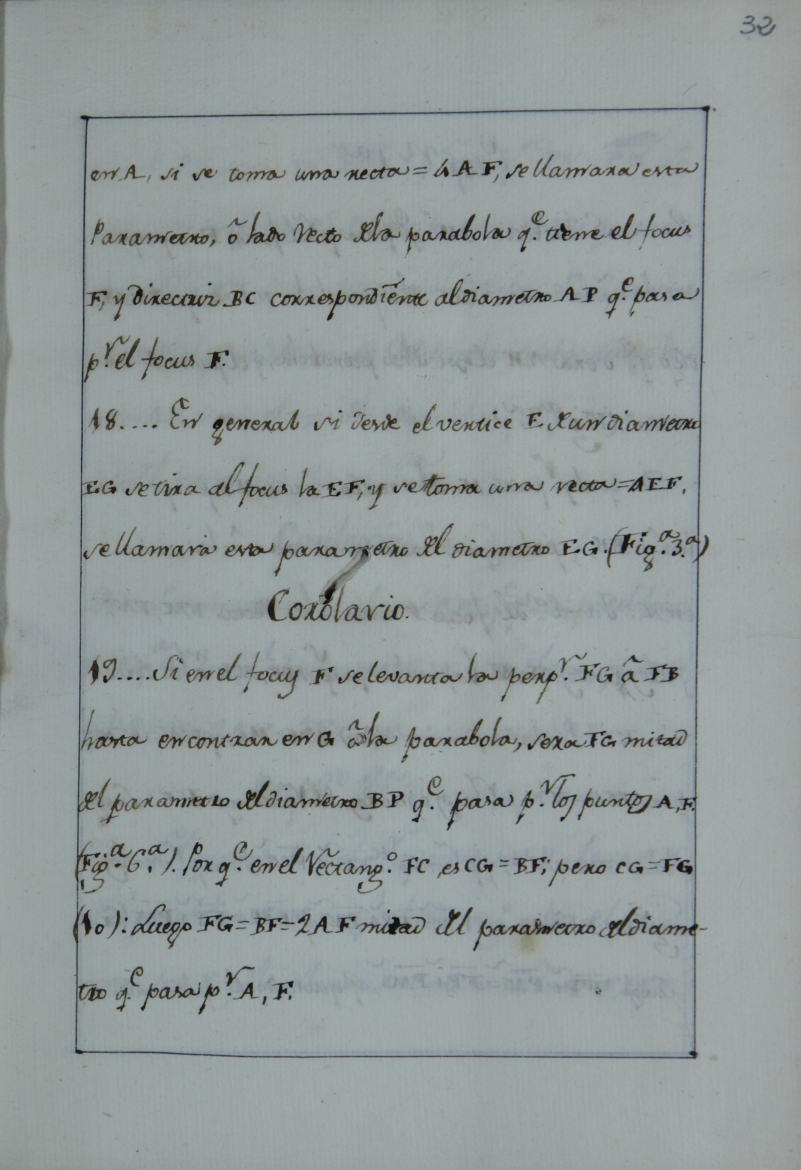 32
en A, si se toma una recta = 4 A F, se llamara esta
Parametro, ô lado recto dela parabola q.e tiene el focus
F, y directriz BC correspondiente al diametro AP q.e pasa
p.r el focus F.
18.... En general si desde el vertice E de un diametro
EG se tira al focus la EF, y se toma una recta = 4EF,
se llamará esta parametro del diametro EG. (Fig.a 3.a)
Corolario.
19.... Si en el focus F se levanta la perp.r FG â FB
hasta encontrar en G â la parabola, sera FG mitad
del parametro del diametro BP q.e pasa p.r los puntos A, F.
(Fig.a 6.a). Por q.e en el Rectang.o FC, es CG = BF; pero CG = FG
(10): Luego FG = BF = 2 A F mitad del parametro del diame-
tro q.e pasa p.r A, F.